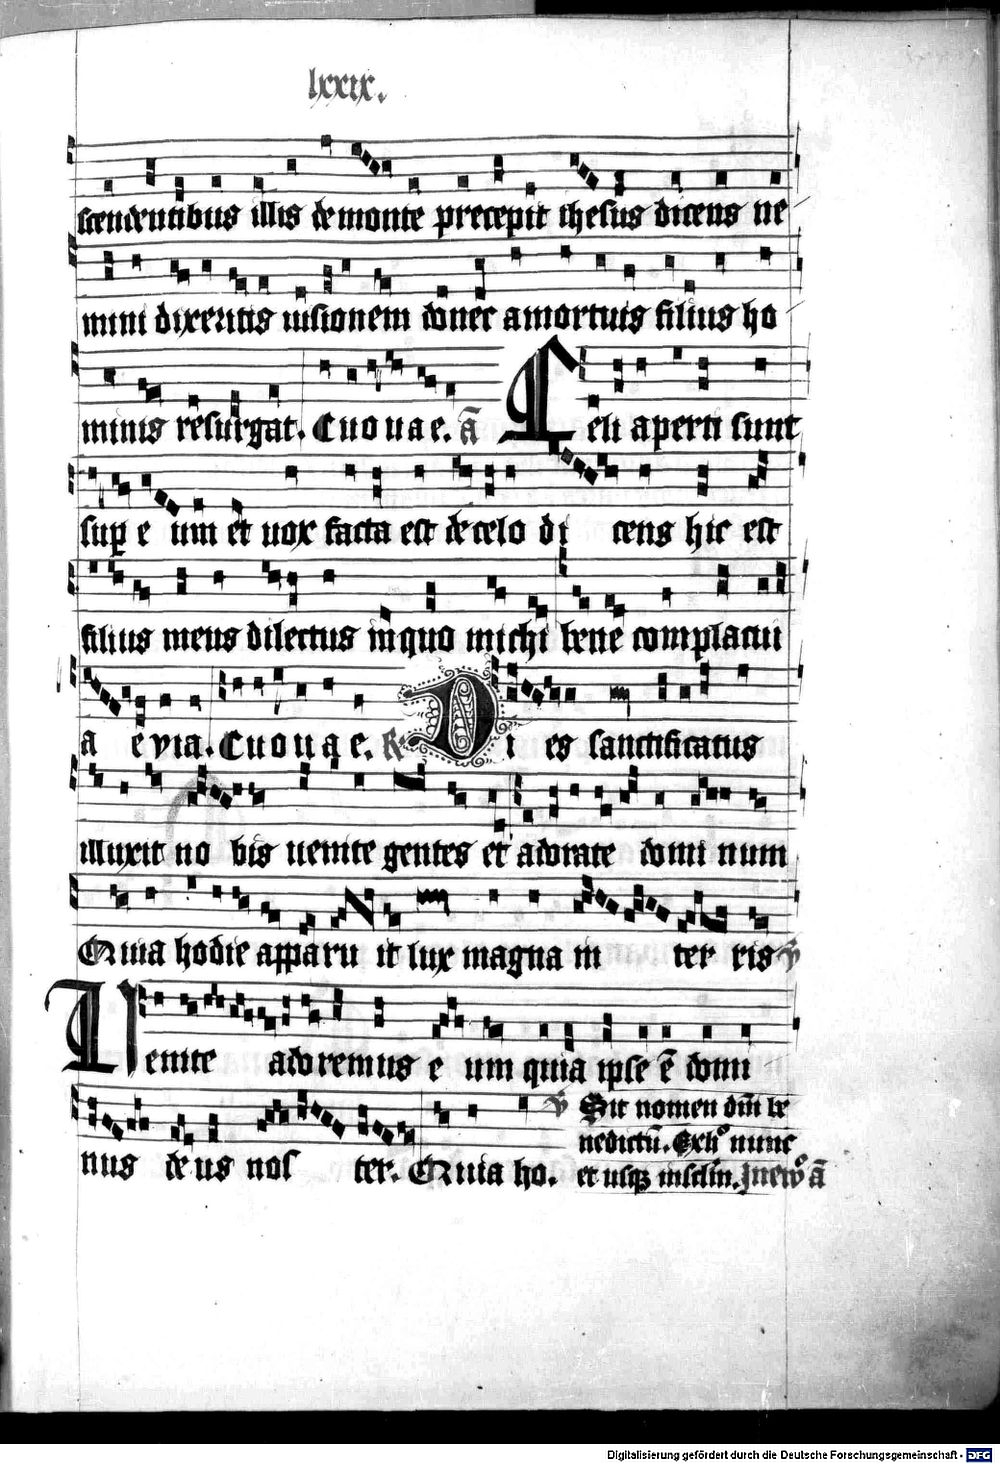 lxxix.
scendentibus illis de monte precepit ihesus dicens ne
mini dixeritis uisionem donec a mortuis filius ho
minis resurgat. Euouae. ā Celi aperti sunt
sup e um et uox facta est de celo di cens hic est
filius meus dilectus in quo michi bene complacui
a e via. Euouae. R Di es sanctificatus
illuxit no bis uenite gentes et adorate domi num
Quia hodie apparu it lux magna in ter ris V
Uenite adoremus e um quia ipse ē domi
nus de us nos ter. Quia ho. V Sit nomen dn̄i be
nedictū. Exh° nunc
et usq;
Digitalisierung gefördert durch die Deutsche Forschungsgemeinschaft - DFG